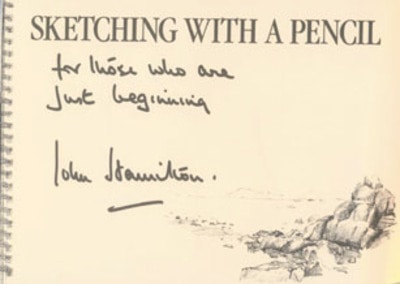 SKETCHING WITH A PENCIL
for those who are
just beginning
John Hamilton.